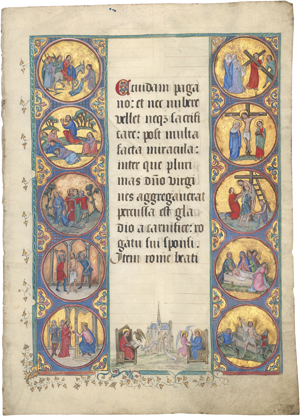 A cuidam paga
no: et nec nubere
vellet necꝫ sacrifi
care: post multa
facta miracula:
inter que pluri
mas dño virgi
nes aggregauerat
percussa est gla
dio a carnifice: ro
gatu sui sponsi.
Item rome beati